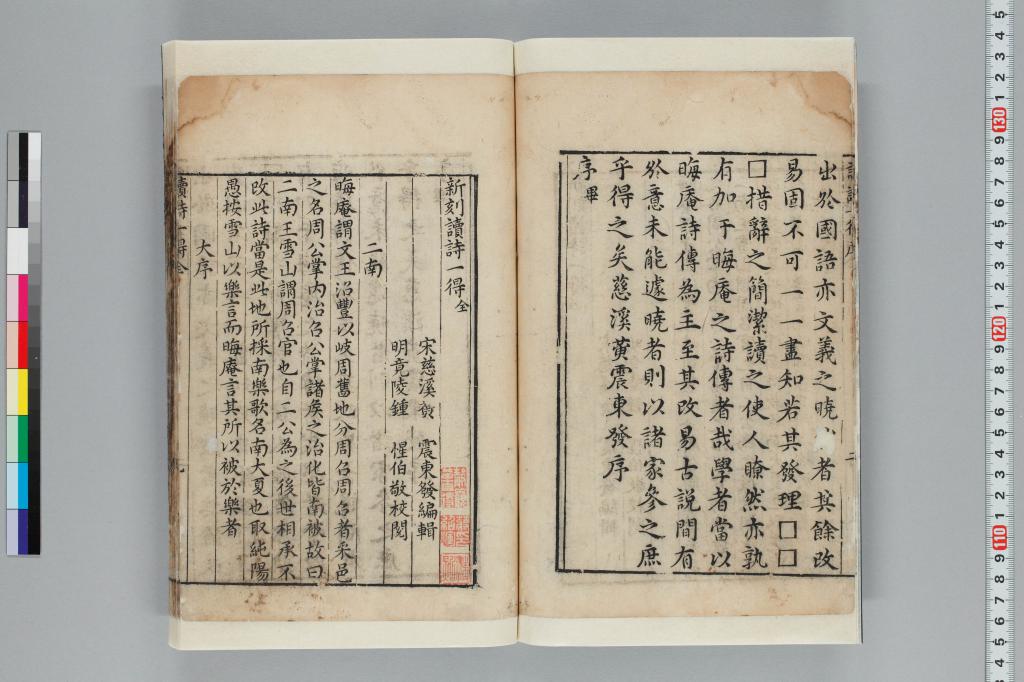 出於國語亦文義之曉 者其餘改
易固不可一一盡知若其發理□□
□措辭之簡潔讀之使人瞭然亦孰
有加于晦庵之詩傳者哉學者當以
晦庵詩傳為主至其改易古說間有
於意未能遽曉者則以諸家參之庶
乎得之矣慈溪黄震東發序
序畢
新刻讀詩一得全
宋慈溪 震東發編輯
明竟陵鍾 惺伯敬校閱
二南
晦庵謂文王治豐以岐周舊地分周召周召者采邑
之名周公掌内治召公掌諸侯之治化皆南被故曰
二南王雪山謂周召官也自二公為之後世相承不
改此詩當是此地所採南樂歌名南大夏也取純陽
大序
愚按雪山以樂言而晦庵言其所以被於樂者
讀詩一得全